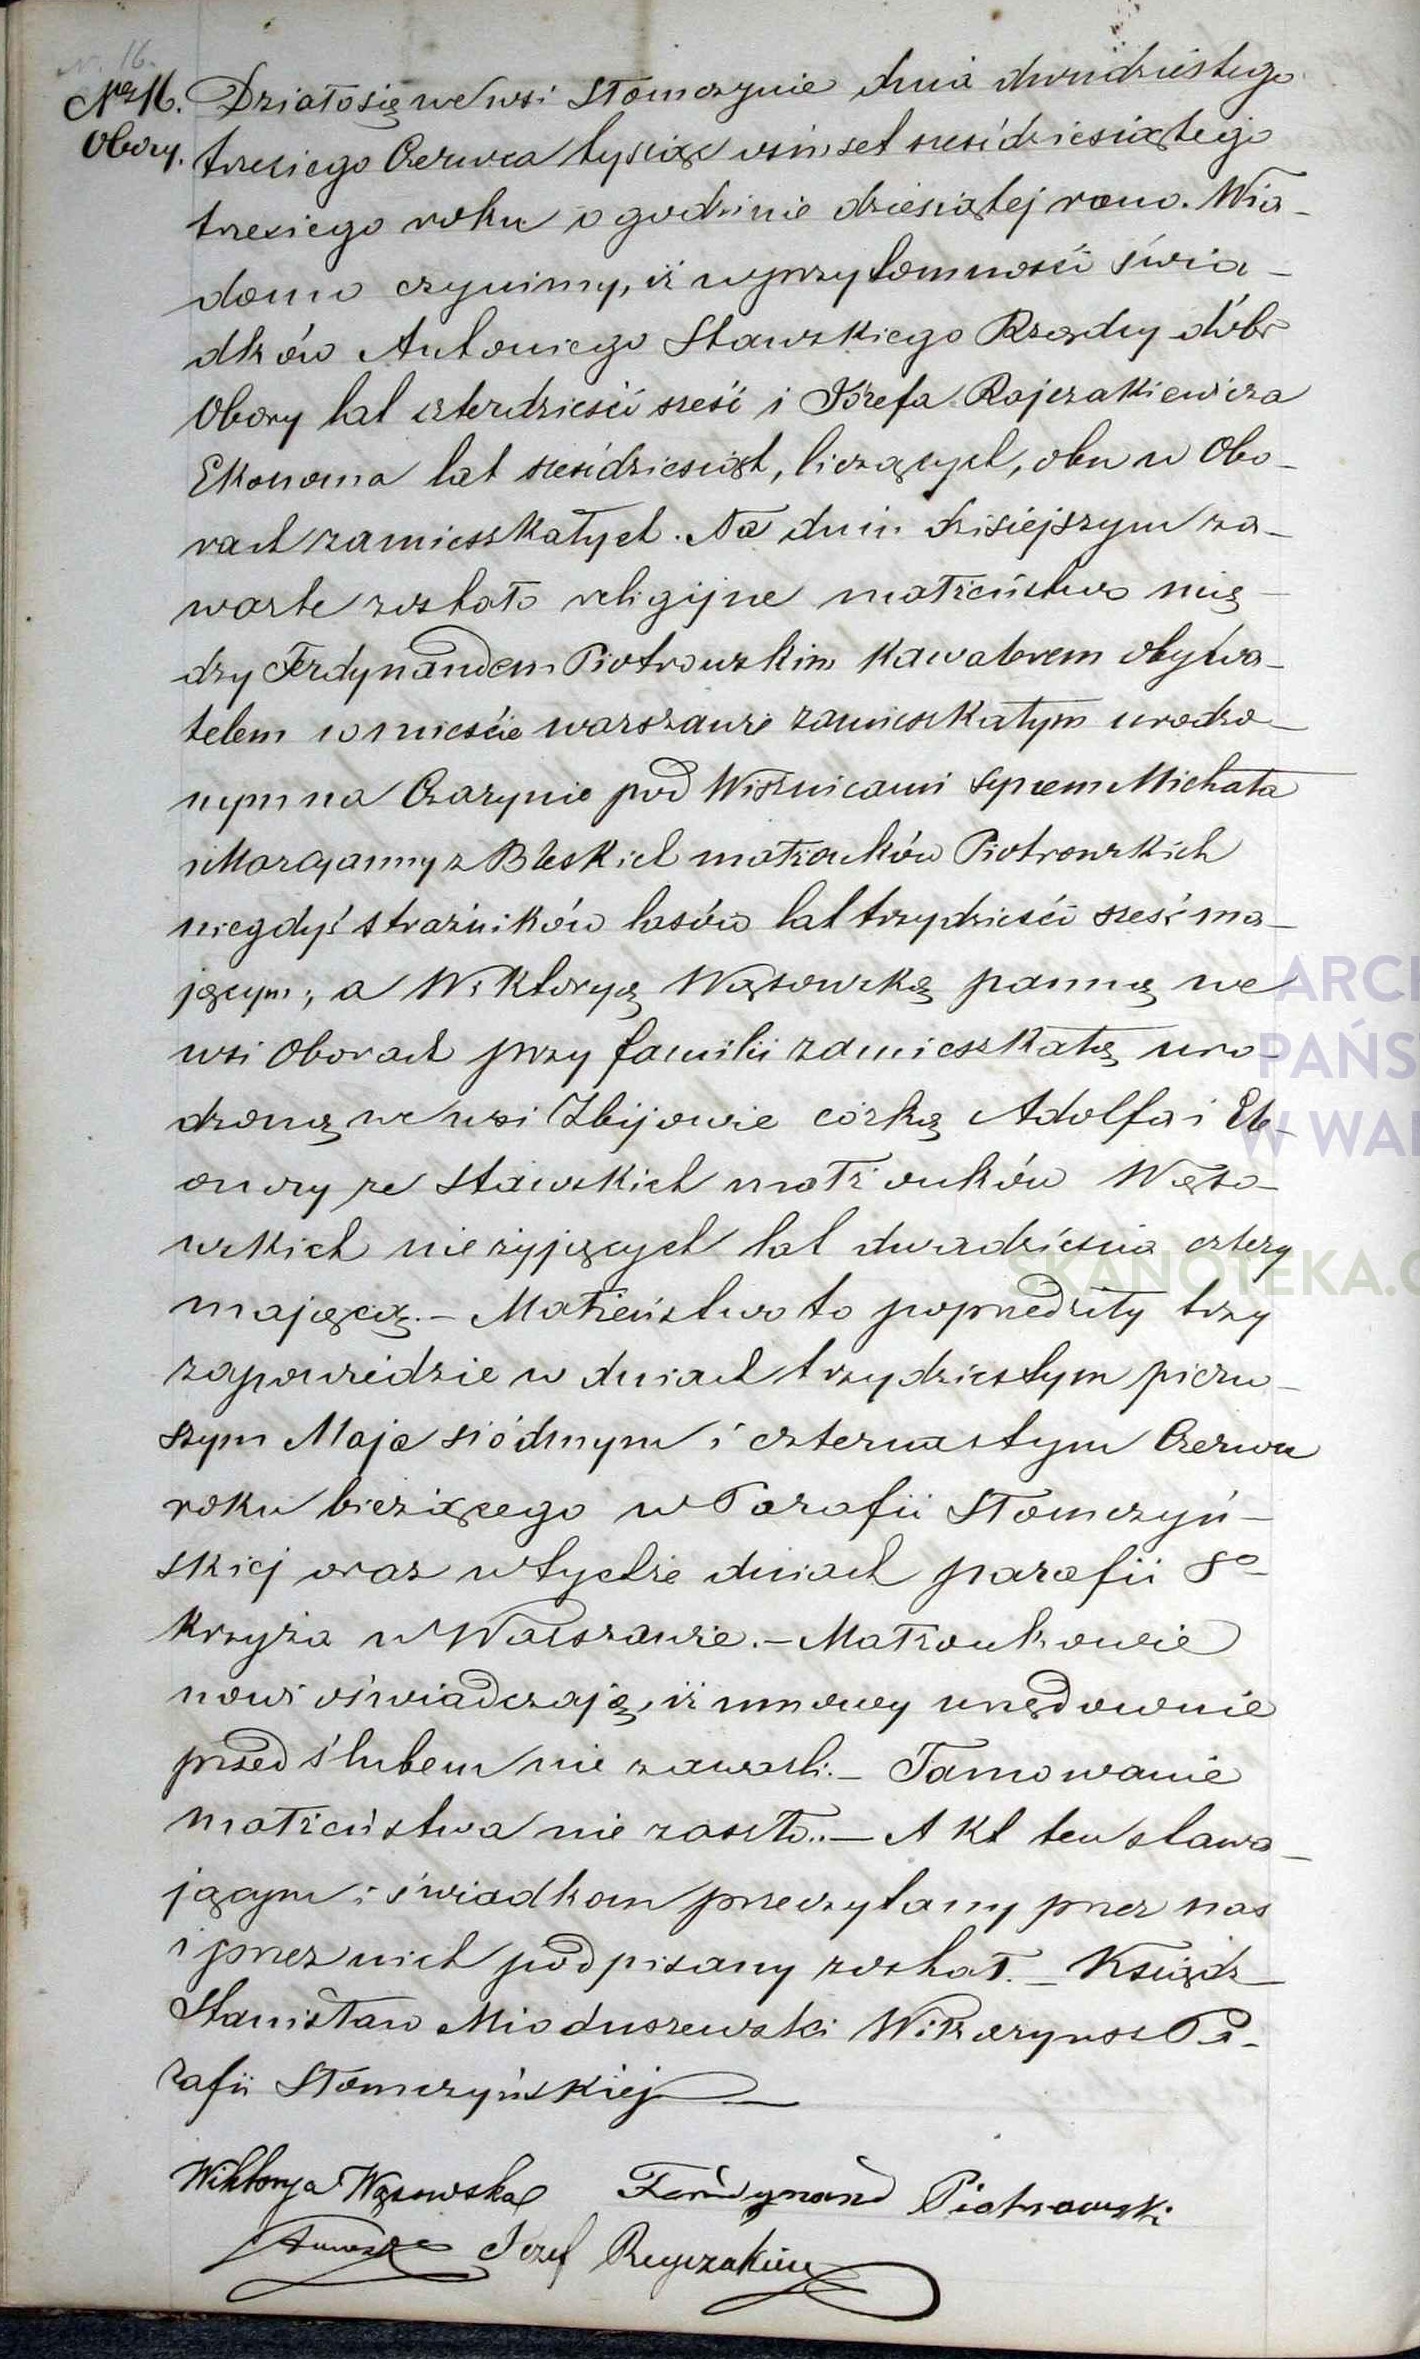 N. 16.
Nr 16. Działo się we wsi Słomczynie dnia dwudziestego
Obory. trzeciego Czerwca tysiąc ośmset sześćdziesiątego
trzeciego roku o godzinie dziesiątej rano. Wia-
domo czynimy, iż w przytomności świa-
dków Antoniego Sławskiego Rządcy dóbr
Obory lat czterdzieści sześć i Józefa Rajczakiewicza
Ekonoma lat sześćdziesiąt, liczących, obu w Obo-
rach zamieszkałych. Na dniu dzisiejszym za-
warte zostało religijne małżeństwo mię-
dzy Ferdynandem Piotrowskim Kawalerem obywa-
telem w mieście warszawie zamieszkałym urodzo-
nym na Czarynie pod Wisznicami synem Michała
i Maryanny z Bleskich małżonków Piotrowskich
niegdyś strażników lasów lat trzydzieści sześć ma-
jącym; a Wiktoryą Wąsowską panną we
wsi Oborach przy familii zamieszkałą uro-
dzoną we wsi Zbijowie córką Adolfa i Ele-
onory ze Sławskich małżonków Wąso-
wskich nieżyjących lat dwadzieścia cztery
mającą. – Małżeństwo to poprzedziły trzy
zapowiedzie w dniach trzydziestym pierw-
szym Maja siódmym i czternastym Czerwca
roku bieżącego w Parafii Słomczyń-
skiej oraz w tychże dniach parafii Sgo
Krzyża w Warszawie. – Małżonkowie
nowi oświadczają, iż umowy urzędownie
przed ślubem nie zawarli. – Tamowanie
małżeństwa nie zaszło.. – Akt ten stawa-
jącym i świadkom przeczytany przez nas
i przez nich podpisany został. – Ksiądz
Stanisław Mioduszewski Wikaryusz Pa-
rafii Słomczyńskiej
Wiktorya Wąsowska Ferdynand Piotrowski
Józef Rayczakiewicz
ARCH
PAŃS
W WAR
SKANOTEKA.G